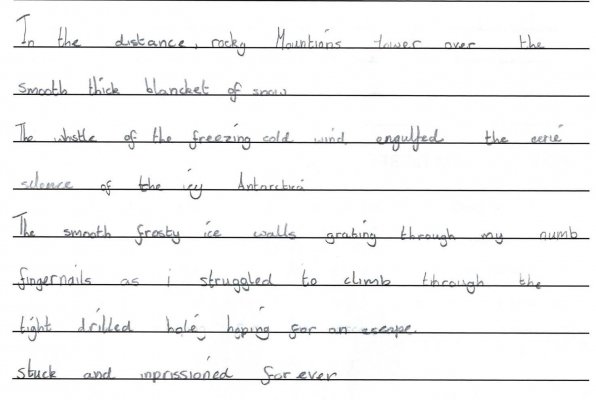 In the distance, rocky Mountians tower over the
smooth thick blancket of snow
The whstle of the freezing cold wind engulfed the eerie
silence of the icy Antarctica
The smooth frosty ice walls grating through my numb
fingernails as i struggled to climb through the
tight drilled hole, hoping for an escape.
stuck and inprissioned for ever